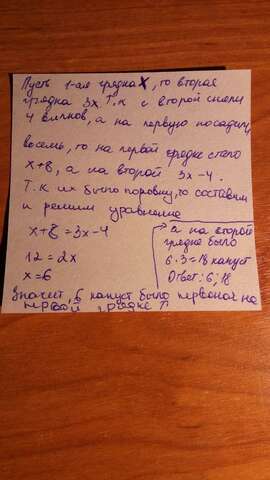 Пусть 1-ая грядка x, то вторая
грядка 3x. Т.к с второй сняли
4 вилков, а на первую посадили
восемь, то на первой грядке стало
x+8, а на второй 3x-4.
Т.к их было поровну, то составим
и решим уравнение
x+8=3x-4
12=2x
x=6
Значит, 6 капуст было первонач на
первой грядке ↑
а на второй
грядке было
6·3=18 капуст
Ответ: 6; 18